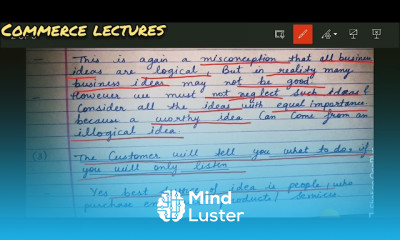 COMMERCE LECTURES
This is again a misconception that all business
ideas are logical, But in reality many
business ideas may not be good.
However we must not neglect such ideas &
Consider all the ideas with equal importance
because a worthy idea can come from an
illogical idea.
The Customer will tell you what to do if
you will only listen
Yes best of idea is people, who
purchase products / services.
Mind
Luster